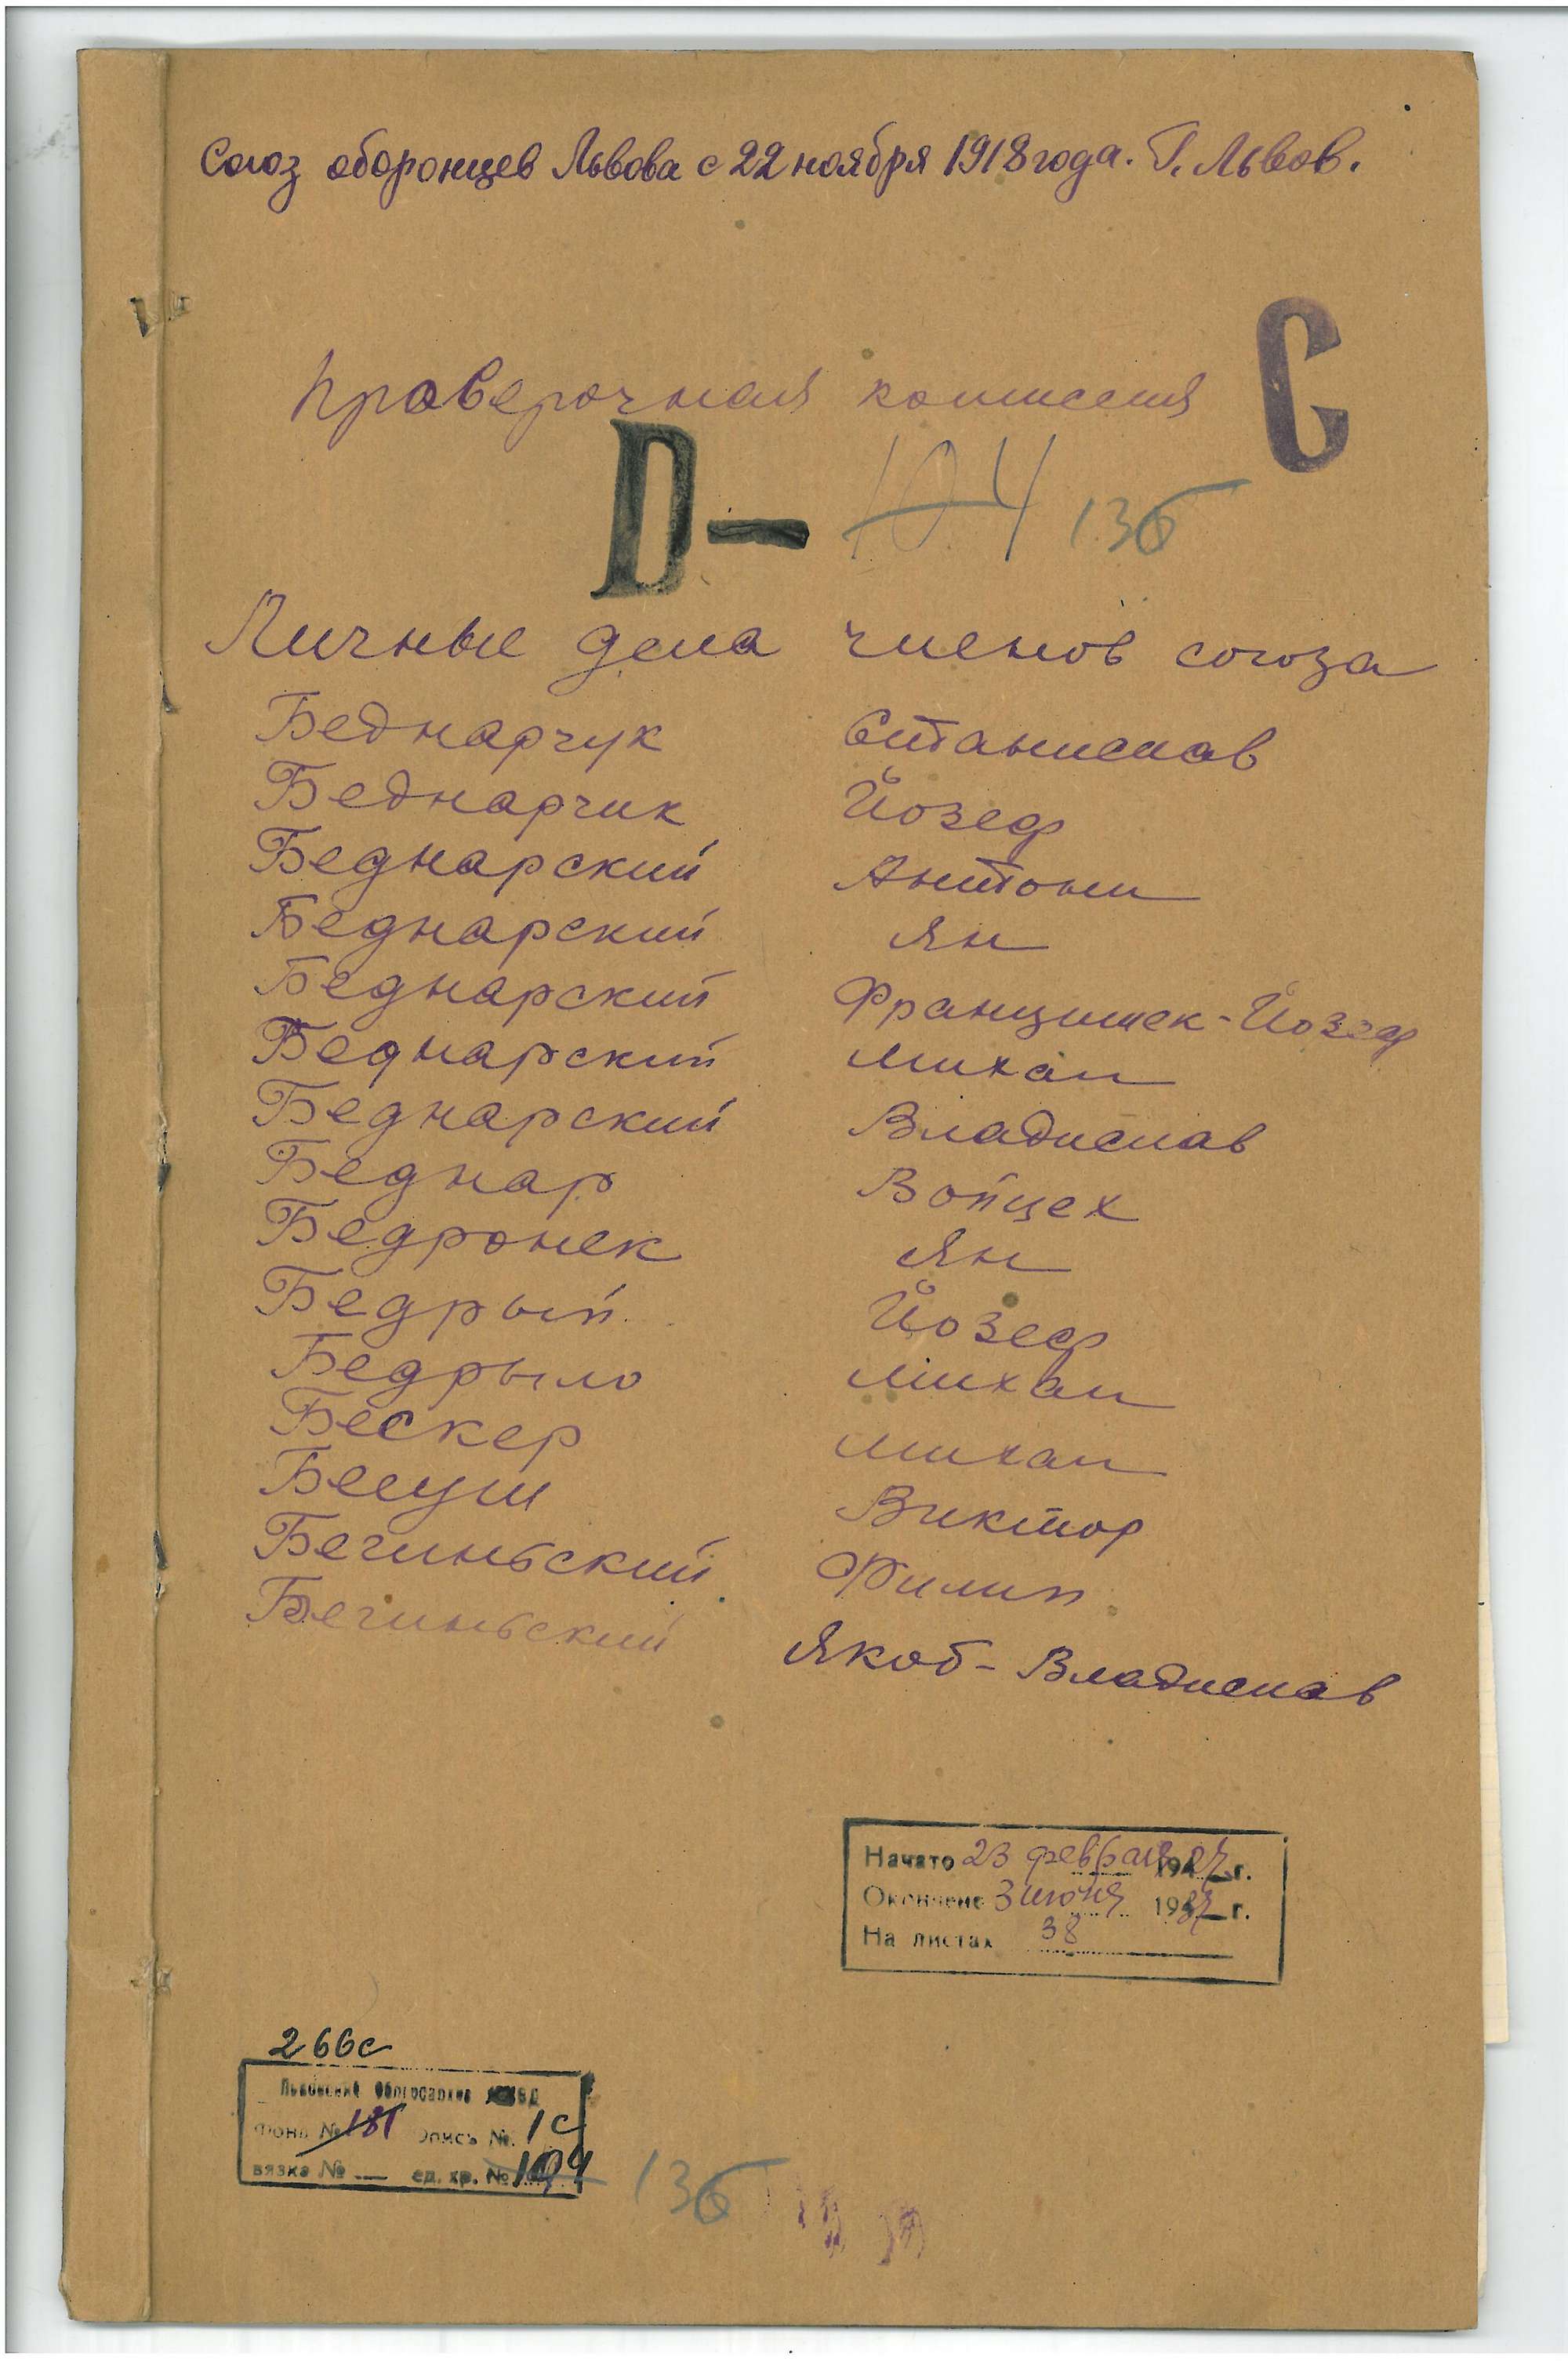 Союз оборонцев Львова с 22 ноября 1918 года. Г. Львов.
С
Проверочная комиссия
D— 104 136
Личные дела членов союза
Беднарчук Станислав
Беднарчик Йозеф
Беднарский Антони
Беднарский Ян
Беднарский Францишек-Йозеф
Беднарский Михал
Беднарский Владислав
Беднар Войцех
Бедронек Ян
Бедрый Йозеф
Бедрыло Михал
Бескер Михал
Виктор
Бегиньский Филип
Бегиньский Якоб-Владислав
Начато 23 февраля г.
Окончено 3 июня г.
На листах 38
266с
Львовский Облгосархив
Фонд № 181 Опись № 1с
вязка № — ед. хр. № 104
136